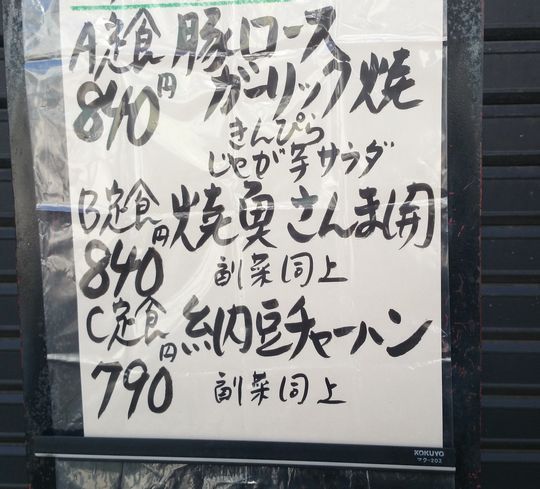 A定食 豚ロース
840円 ガーリック焼
きんぴら
じゃが芋サラダ
B定食 焼魚さんま開
840円 副菜同上
C定食 納豆チャーハン
790円 副菜同上
KOKUYO
マク-202